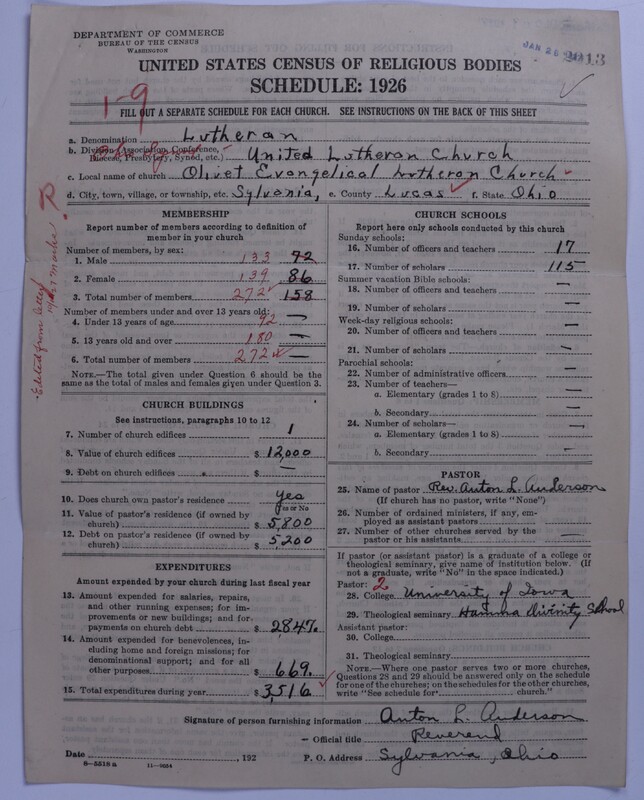 DEPARTMENT OF COMMERCE
BUREAU OF THE CENSUS
WASHINGTON
JAN 26 2013
UNITED STATES CENSUS OF RELIGIOUS BODIES
SCHEDULE: 1926
1-9
FILL OUT A SEPARATE SCHEDULE FOR EACH CHURCH. SEE INSTRUCTIONS ON THE BACK OF THIS SHEET
a. Denomination Lutheran
b. Division (Association, Conference, Diocese, Presbytery, Synod, etc.) United Lutheran Church
c. Local name of church Olivet Evangelical Lutheran Church
d. City, town, village, or township, etc. Sylvania, e. County Lucas f. State Ohio
MEMBERSHIP
Report number of members according to definition of
member in your church
Number of members, by sex:
1. Male 133 72
2. Female 139 86
3. Total number of members 272 158
Number of members under and over 13 years old:
4. Under 13 years of age 92 —
5. 13 years old and over 180 —
6. Total number of members 272 —
NOTE.—The total given under Question 6 should be the
same as the total of males and females given under Question 3.
CHURCH BUILDINGS
See instructions, paragraphs 10 to 12
7. Number of church edifices 1
8. Value of church edifices $ 12,000
9. Debt on church edifices $ —
10. Does church own pastor's residence Yes
Yes or No
11. Value of pastor's residence (if owned by
church) $ 5,800
12. Debt on pastor's residence (if owned by
church) $ 5200
EXPENDITURES
Amount expended by your church during last fiscal year
13. Amount expended for salaries, repairs,
and other running expenses; for im-
provements or new buildings; and for
payments on church debt $ 2847.
14. Amount expended for benevolences, in-
cluding home and foreign missions; for
denominational support; and for all
other purposes $ 669.
15. Total expenditures during year $ 3,516
CHURCH SCHOOLS
Report here only schools conducted by this church
Sunday schools:
16. Number of officers and teachers 17
17. Number of scholars 115
Summer vacation Bible schools:
18. Number of officers and teachers —
19. Number of scholars —
Week-day religious schools:
20. Number of officers and teachers —
21. Number of scholars —
Parochial schools:
22. Number of administrative officers —
23. Number of teachers—
a. Elementary (grades 1 to 8) —
b. Secondary —
24. Number of scholars—
a. Elementary (grades 1 to 8) —
b. Secondary —
PASTOR
25. Name of pastor Rev. Anton L. Anderson
(If church has no pastor, write "None")
26. Number of ordained ministers, if any, em-
ployed as assistant pastors
27. Number of other churches served by the
pastor or his assistants —
If pastor (or assistant pastor) is a graduate of a college or
theological seminary, give name of institution below. (If
not a graduate, write "No" in the space indicated.)
Pastor: 2
28. College University of Iowa
29. Theological seminary Hamma Divinity School
Assistant pastor:
30. College
31. Theological seminary
NOTE.—Where one pastor serves two or more churches,
Questions 28 and 29 should be answered only on the schedule
for one of the churches; on the schedules for the other churches,
write "See schedule for church."
Signature of person furnishing information Anton L. Anderson
Official title Reverend
Date , 192 P. O. Address Sylvania, Ohio
8—5318 a 11—9034